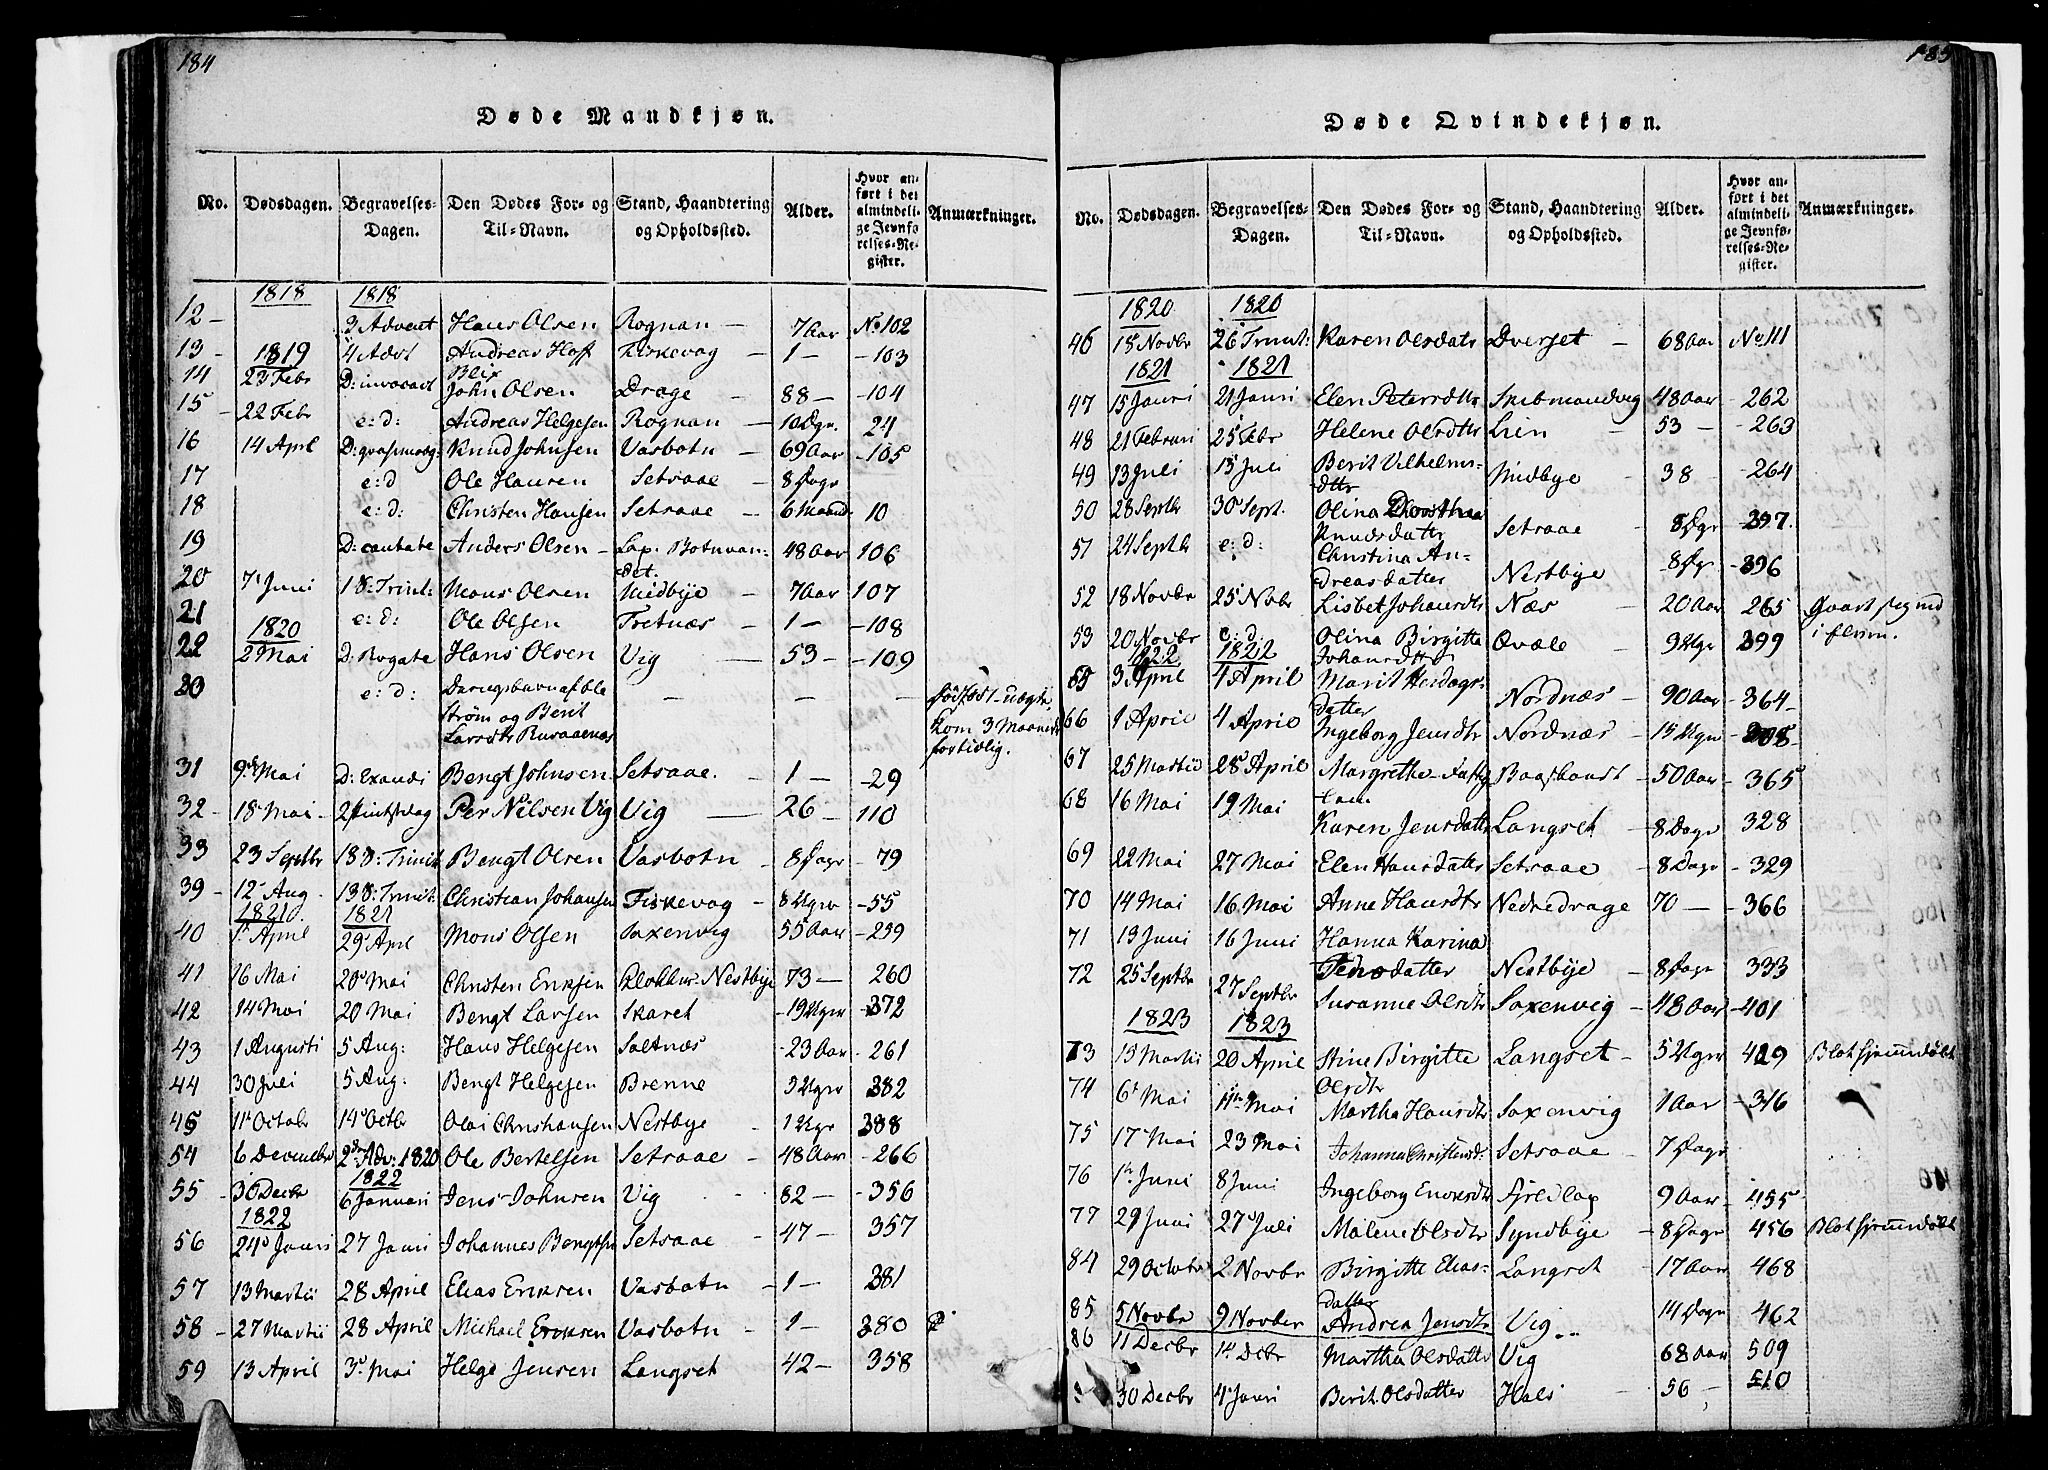 184
Døde Mandkjøn.
No. Dødsdagen. Begravelses-Dagen. Den Dødes For- og Til-Navn. Stand, Haandtering og Opholdssted. Alder. Hvor anført i det almindelige Jevnførelses-Register. Anmærkninger.
1818 1818
12 – 3 Advent Hans Olsen Rognan – 7 Aar No 102
13 – 4 Advt Andreas Hoff Blix Fiskevag – 1 – – 103
1819
14 23 Febr D: invocavt John Olsen Drage 88 – – 104
15 – 22 Febr e: d: Andreas Helgesen Rognan – 10 Dgr. 24
16 14 Apri D: qvasimodg: Knud Johnsen Vasbotn – 69 Aar – 105
17 e: d Ole Hansen Setraae – 8 Dage
18 e: d: Christen Hansen Setraae – 6 Maand 10
19 D: cantate Anders Olsen – Lap. Botnvandet. 48 Aar 106
20 7 Juni 1 S: Trinit: Mons Olsen Midbye – 7 Aar 107
21 e: d: Ole Olsen Tretnæs – 1 – – 108
1820
22 2 Mai D: Rogate Hans Olsen Vig – 53 – – 109
30 e: d: Drengebarn af Ole Strøm og Berit Larsdtr – – – kom 3 Maaneder fortidlig.
31 9de Mai D: Exaudi Bengt Johnsen Setraae. – 1 – – 29
32 – 18 Mai – 2 Pintsedag Per Nilsen Vig Vig – 26 – 110
33 23 Septbr 18 S: Trinit Bengt Olsen Vasbotn – 8 Dage – 79
39 – 12 Aug. 13 S: Trinit: Christian Johansen Fiskevag – 8 Ugr – 55
1821 1821
40 1 April 29 Apri Mons Olsen Saxenvig 55 Aar – 259
41 16 Mai 20 Mai Christen Eriksen Klokker Nestbye 73 – 260
42 14 Mai 20 Mai Bengt Larsen Skaret – 19 Ugr – 372
43 1 Augusti 5 Aug: Hans Helgesen Saltnæs – 23 Aar – 261
44 30 Juli 5 Aug: Bengt Helgesen Brenne 3 Ugr – 382
45 11 Octobr 14 Octbr Olai Christiansen Nestbye – 1 Ugr 388
54 6 Decembr 2den Adv: 1820 Ole Bertelsen Setraae – 48 Aar – 266
1822
55 – 30 Decbr 6 Januari Jens Johnsen Vig 82 – – 356
1822
56 24 Janri 27 Janri Johannes Bengtsen Setraae – 47 – 357
57 13 Martii 28 April Elias Eriksen Vasbotn – 1 – 381
58 – 27 Martii 28 April Michael Eriksen Vasbotn – 1 – 380
59 13 April 3 Mai Helge Jensen Langset 42 – 358
185
Døde Qvindekjøn.
No. Dødsdagen. Begravelses-Dagen. Den Dødes For- og Til-Navn. Stand, Haandtering og Opholdssted. Alder. Hvor anført i det almindelige Jevnførelses-Register. Anmærkninger.
1820 1820
46 18 Novbr 26 Trinit: Karen Olsdatr Dverset – 68 Aar No 111
1821 1821
47 15 Janri 21 Janri Elen Petersdtr Skibmandvig 48 Aar – 262
48 21 Februari 25 Febr Helene Olsdtr Lien – 53 – – 263
49 13 Juli 15 Juli Berit Vilhelmsdtr Midbye – 38 – 264
50 28 Septbr 30 Sept. Olina Dorothea Knudsdatter Setraae – 8 Dgr – 397.
51 24 Septbr e: d: Christina Andreasdatter Nestbye – 8 Dgr – 396
52 18 Novbr 25 Nvbr Lisbet Johansdtr Næs – 20 Aar 265
53 20 Novbr e: d: Olina Birgitte Johansdtr Qvæle – 9 Ugr 399
1822 1822
65 3 April 4 April Marit datter Nordnæs – 90 Aar – 364 –
66 1 April 4 April Ingeborg Jensdtr Nordnæs – 15 Ugr
67 25 Martii 28 April Margrethe Baashandt – 50 Aar – 365
68 16 Mai 19 Mai Karen Jensdatter Langset – 8 Dage 328
69 22 Mai 27 Mai Elen Hansdatter Setraae – 8 Dage – 329
70 14 Mai 16 Mai Anne Hansdtr Nedredrage 70 – – 366
71 13 Juni 16 Juni Hanna Karina Pedersdatter Nestbye – 8 Dage – 333
72 25 Septbr 27 Septbr Susanne Olsdtr Saxenvig – 48 Aar – 401
1823 1823
73 15 Martii 20 April Stine Birgitte Olsdtr Langset – 5 Ugr 419 Blot hjemmedøbt
74 6 Mai 11te Mai Martha Hansdtr Saxenvig 1 Aar – 316
75 17 Mai 23 Mai Johanna Christensd: Setraae – 7 Dage
76 1 Juni 8 Juni Ingeborg Enoksdtr Fjeldlap 9 Aar – 455
77 29 Juni 27 Juli Malene Olsdtr Syndbye – 8 Dage – 456 Blot hjemmedøbt
84 29 Octobr 2 Novbr Birgitte Eliasdatter Langset – 17 Aar 468
85 5 Novbr 9 Novber Andrea Jensdtr Vig 14 Dage 462
86 11 Decbr 14 Dcbr Martha Olsdatter Vig 68 Aar 509
30 Decbr 4 Janri Berit Olsdatter Hals – 56 – 510